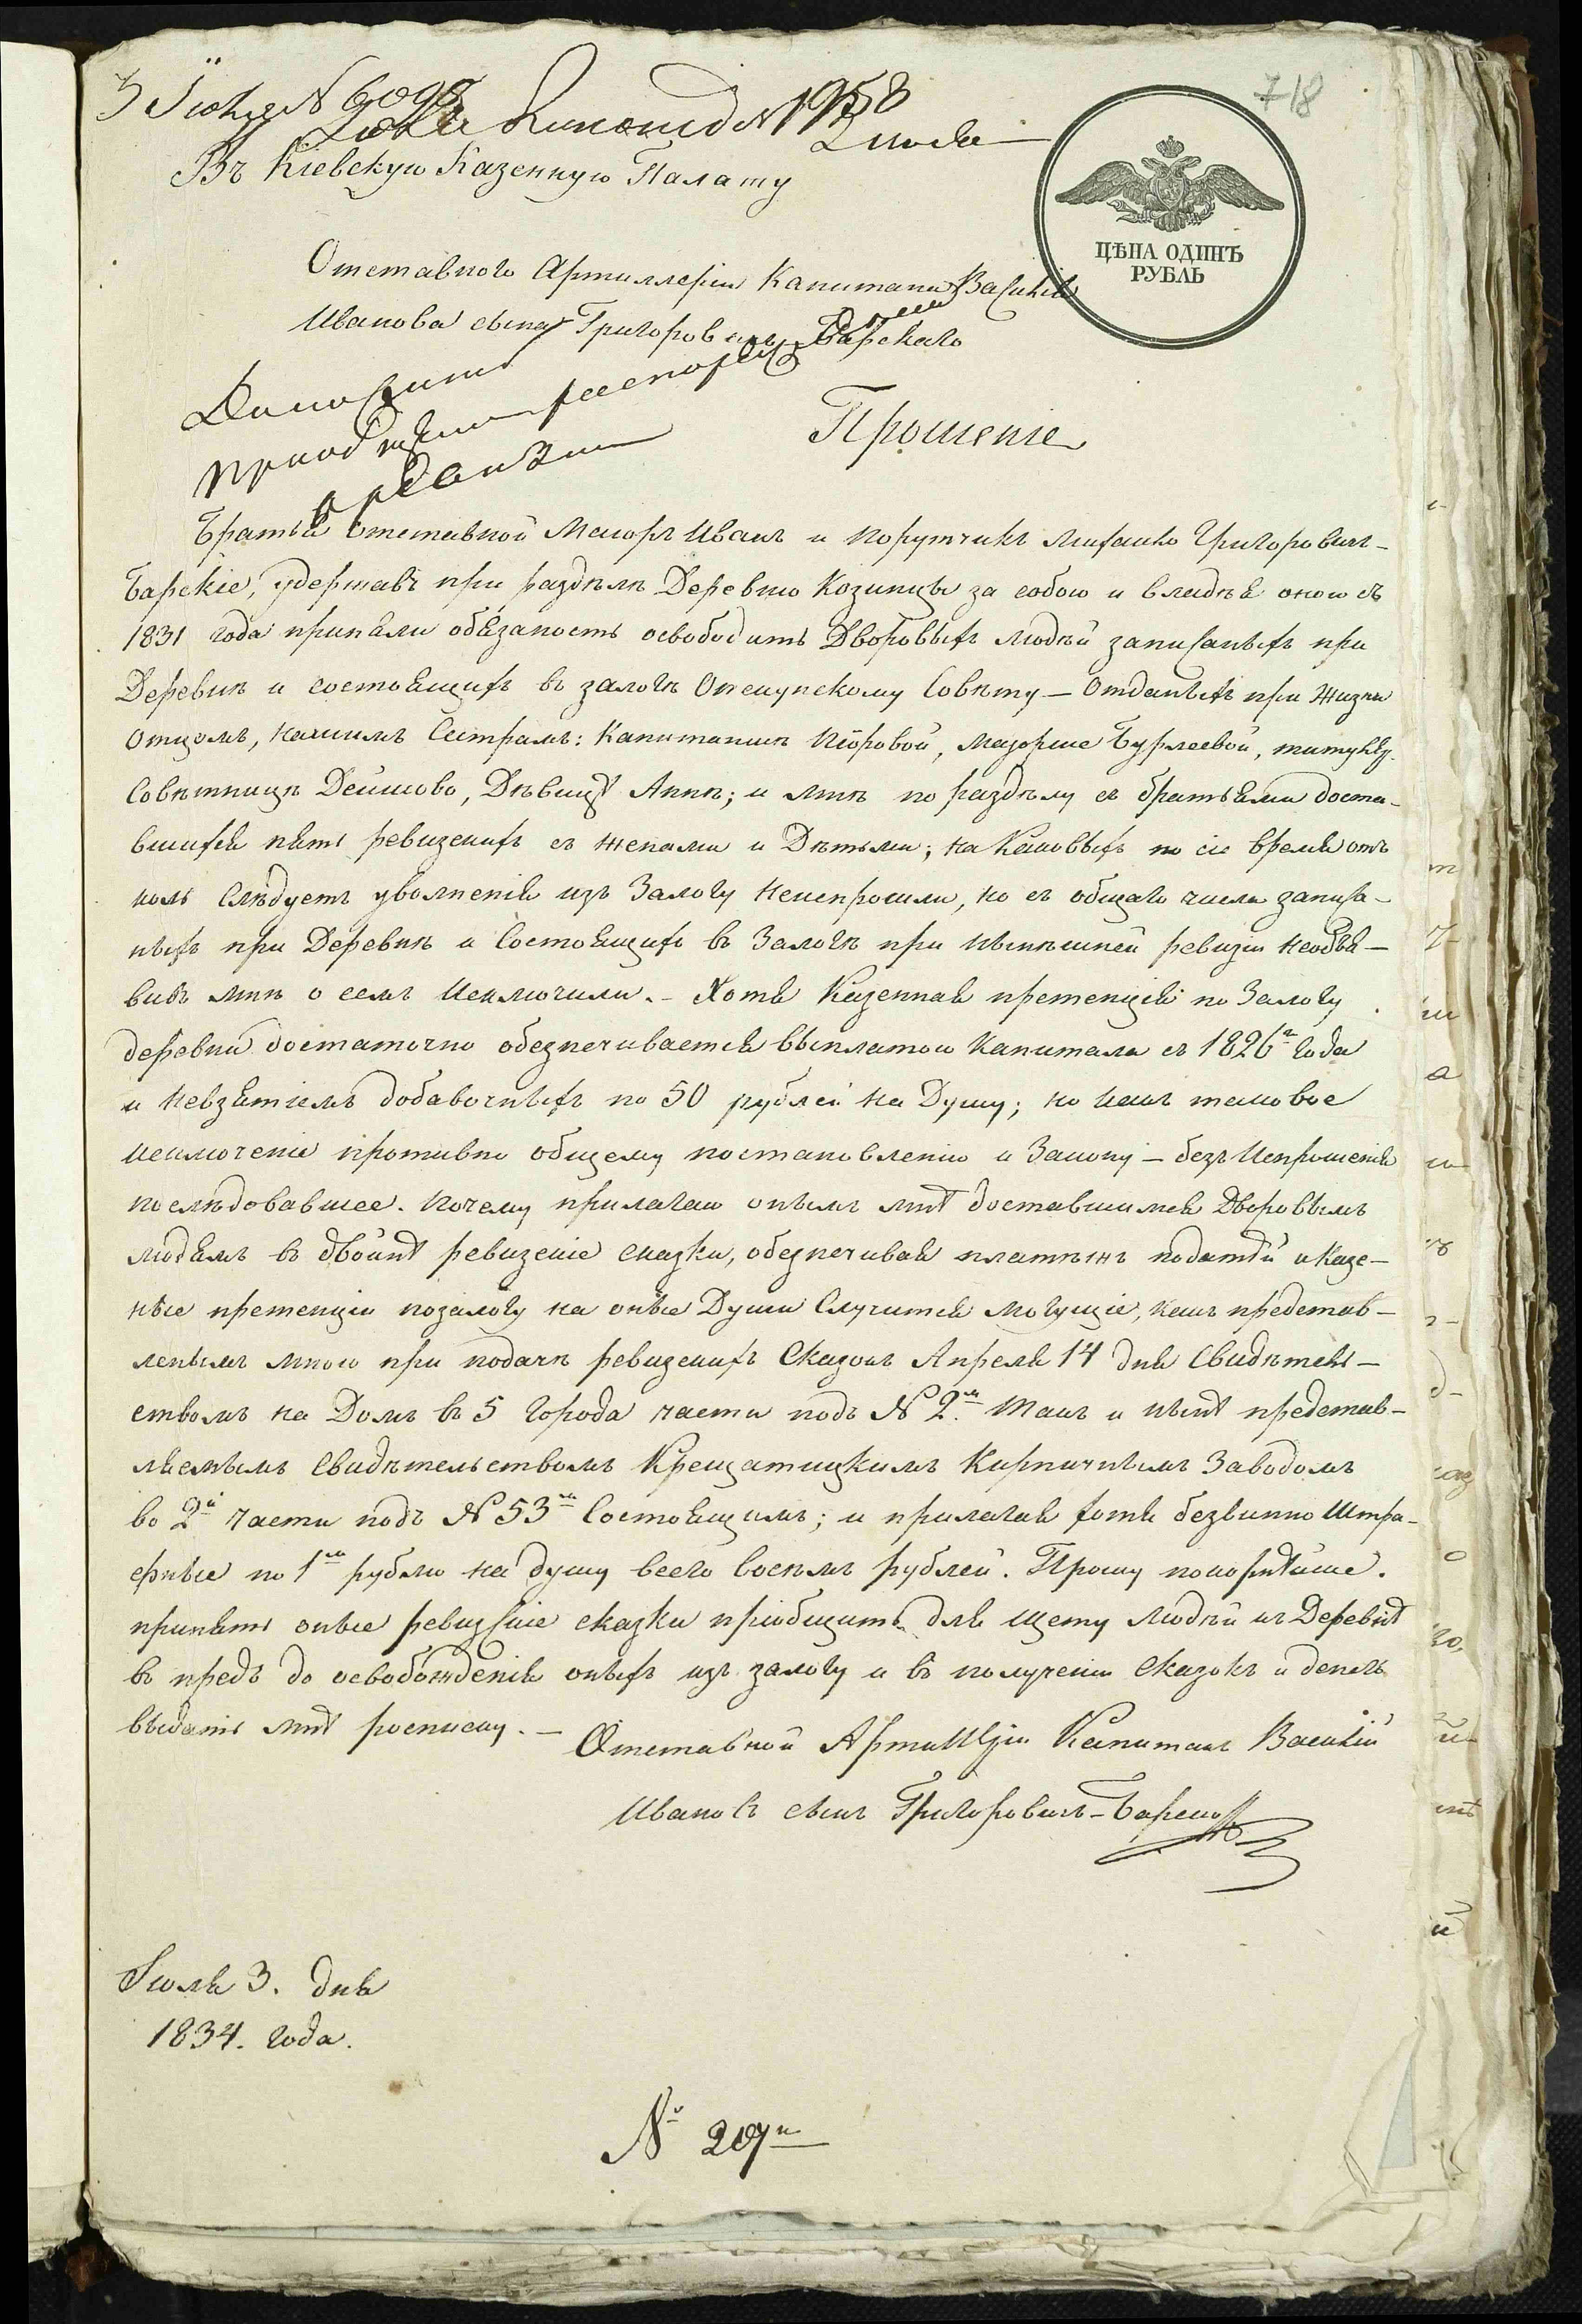 718
3 Іюля N 6098
N 1958
Въ Кіевскую Казенную Палату
ЦѢНА ОДИНЪ
РУБЛЬ
Отставного Артиллеріи Капитана Василія
Иванова сына Григоровича-Барскаго
Прошеніе
Братья отставной Маіоръ Иванъ и порутчикъ Михайло Григоровичи-
Барскіе, удержавъ при раздѣлѣ Деревню Козинцы за собою и владѣя оною съ
1831 года приняли обязаность освободить Дворовыхъ людѣй записаныхъ при
Деревнѣ и состоящихъ въ залогѣ Опекунскому Совѣту — Отданыхъ при жизни
отцомъ, нашимъ Сестрамъ: Капитаншѣ, Маіорше Бурлеевой, титуляр.
Совѣтницѣ, Дѣвицѣ Аннѣ; и мнѣ по раздѣлу съ братьями доста-
вшихся пять ревизскихъ съ женами и Дѣтьми; на каковыхъ по сіе время отъ
коль слѣдуетъ уволненія изъ Залогу неиспросили, но съ общаго числа записа-
ныхъ при Деревнѣ и Состоящихъ въ Залогѣ при нынѣшней ревизіи необъя-
вивъ мнѣ о семъ исключили. — Хотя Казенная претенція по Залогу
деревни достаточно обезпечивается выплатою Капитала съ 1826го года
и невзятіемъ добавочныхъ по 50 рублей на Душу; но какъ таковое
исключеніе противно общему постановленію и Закону — безъ испрошенія
послѣдовавшее. Почему прилагаю онымъ мнѣ доставшимся Дворовымъ
людямъ въ двойнѣ ревизскіе сказки, обезпечивая платежъ податѣй и Казе-
ные претенціи позалогу на оные Души Случится могущіе, какъ представ-
ленымъ мною при подачѣ ревизскихъ Сказокъ Апреля 14 дня Свидѣтель-
ствомъ на Домъ въ 5 города части подъ N 2мъ такъ и нынѣ представ-
ляемымъ Свидѣтельствомъ Крещатицкимъ Кирпичнымъ Заводомъ
во 2й части подъ N 53мъ Состоящимъ; и прилагая хотя безвинно Штра-
фные по 1му рублю на душу всего восемь рублей. Прошу покорнѣйше.
принять оные ревизскіе сказки пріобщить для щету людѣй къ Деревнѣ
въ предь до освобожденія оныхъ изъ залогу и въ полученіи Сказокъ и денегъ
выдать мнѣ росписку. —
Отставной Артиллеріи Капитанъ Василій
Ивановъ сынъ Григоровичъ-Барскій
Іюля 3. дня
1834. года.